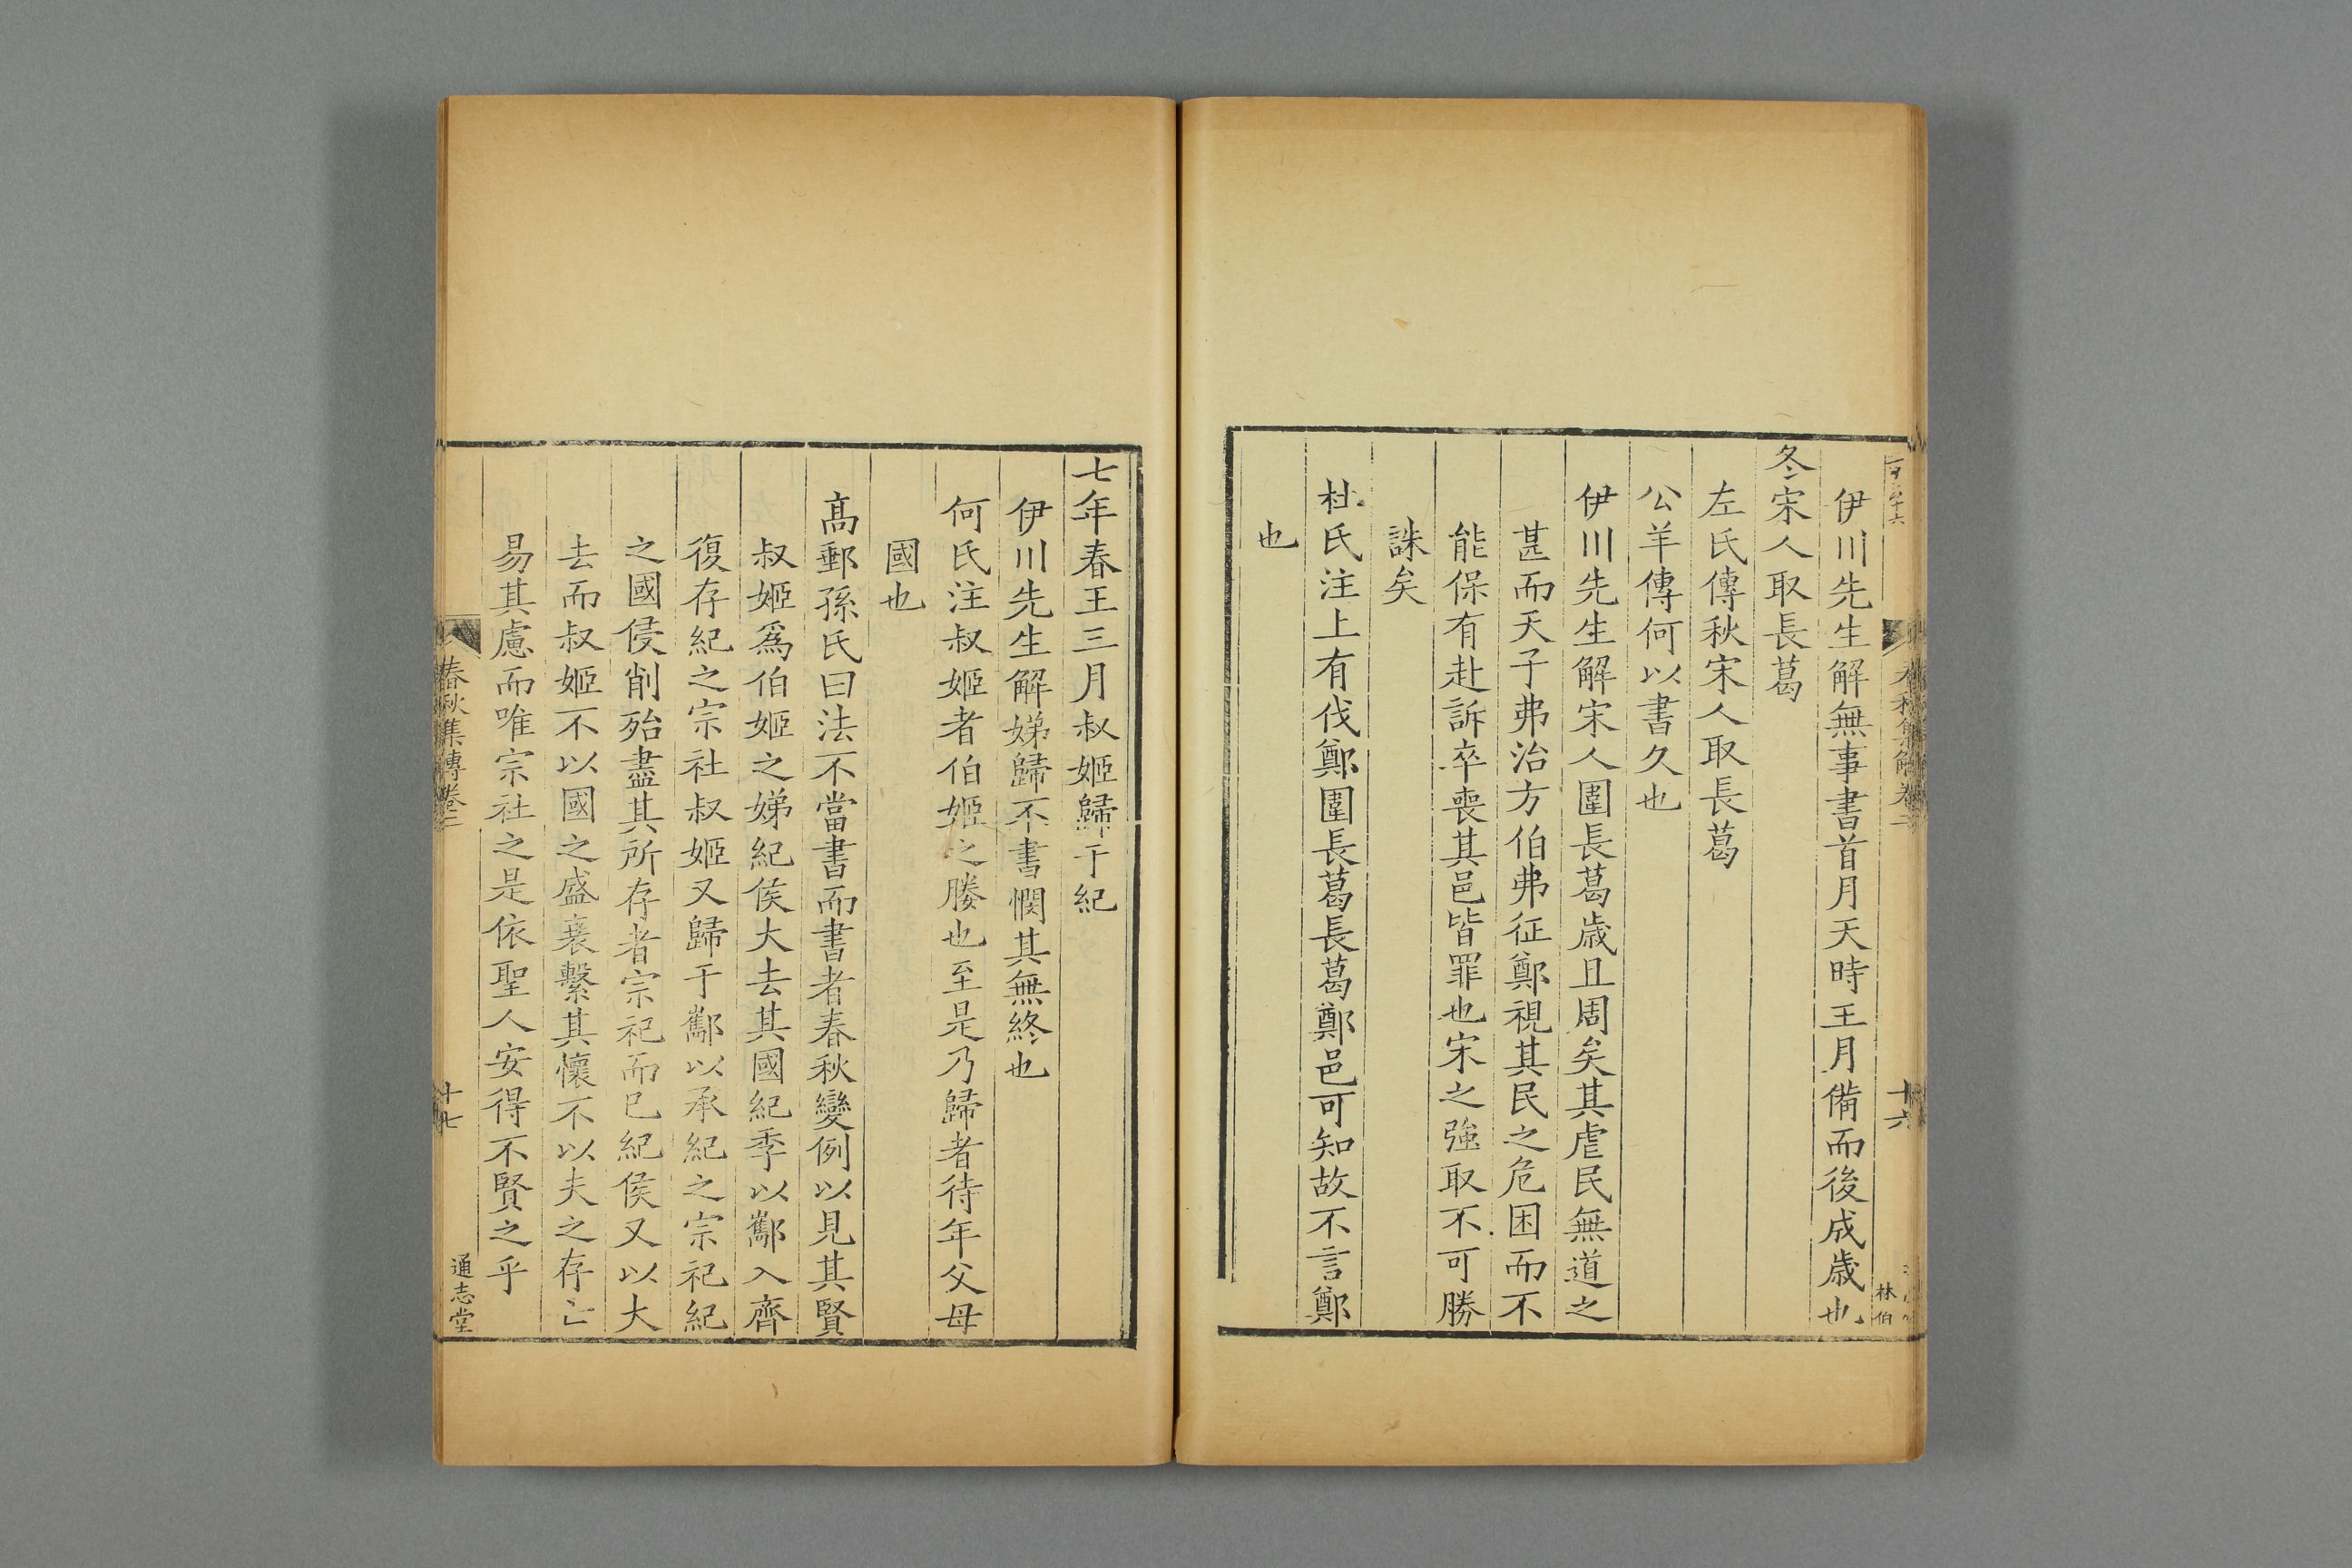 伊川先生解無事書首月天時王月備而後成歲也
冬宋人取長葛
左氏傳秋宋人取長葛
公羊傳何以書久也
伊川先生解宋人圍長葛歲且周矣其虐民無道之
甚而天子弗治方伯弗征鄭視其民之危困而不
能保有赴訴卒喪其邑皆罪也宋之強取不可勝
誅矣
杜氏注上有伐鄭圍長葛長葛鄭邑可知故不言鄭
也
十六
林伯
七年春王三月叔姬歸于紀
伊川先生解娣歸不書憫其無終也
何氏注叔姬者伯姬之媵也至是乃歸者待年父母
國也
高郵孫氏曰法不當書而書者春秋變例以見其賢
叔姬爲伯姬之娣紀侯大去其國紀季以酅入齊
復存紀之宗社叔姬又歸于酅以承紀之宗祀紀
之國侵削殆盡其所存者宗祀而已紀侯又以大
去而叔姬不以國之盛衰繫其懷不以夫之存亡
易其慮而唯宗社之是依聖人安得不賢之乎
春秋集傳卷二
十七
通志堂